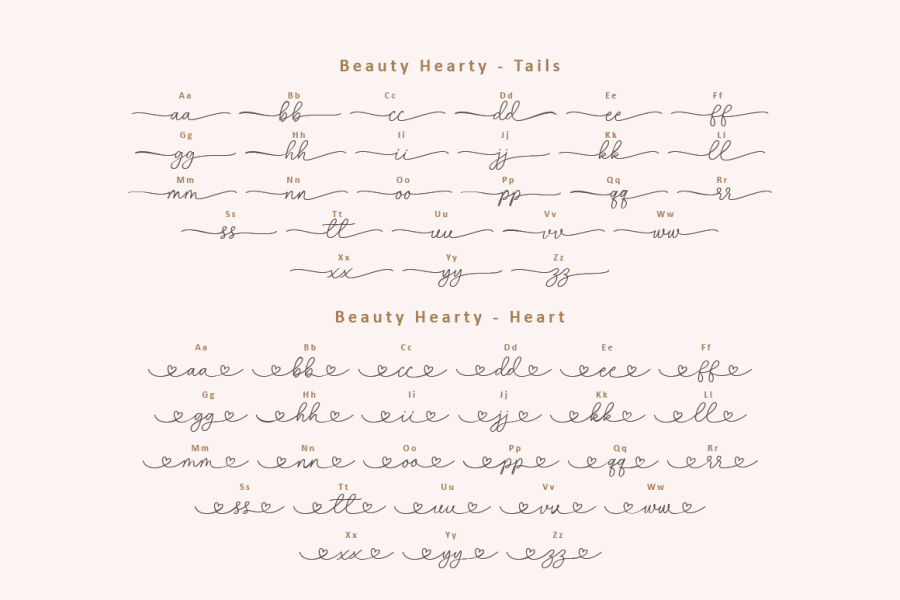 Beauty Hearty - Tails
Aa Bb Cc Dd Ee Ff
aa bb cc dd ee ff
Gg Hh Ii Jj Kk Ll
gg hh ii jj kk ll
Mm Nn Oo Pp Qq Rr
mm nn oo pp qq rr
Ss Tt Uu Vv Ww
ss tt uu vv ww
Xx Yy Zz
xx yy zz
Beauty Hearty - Heart
Aa Bb Cc Dd Ee Ff
aa bb cc dd ee ff
Gg Hh Ii Jj Kk Ll
gg hh ii jj kk ll
Mm Nn Oo Pp Qq Rr
mm nn oo pp qq rr
Ss Tt Uu Vv Ww
ss tt uu vv ww
Xx Yy Zz
xx yy zz